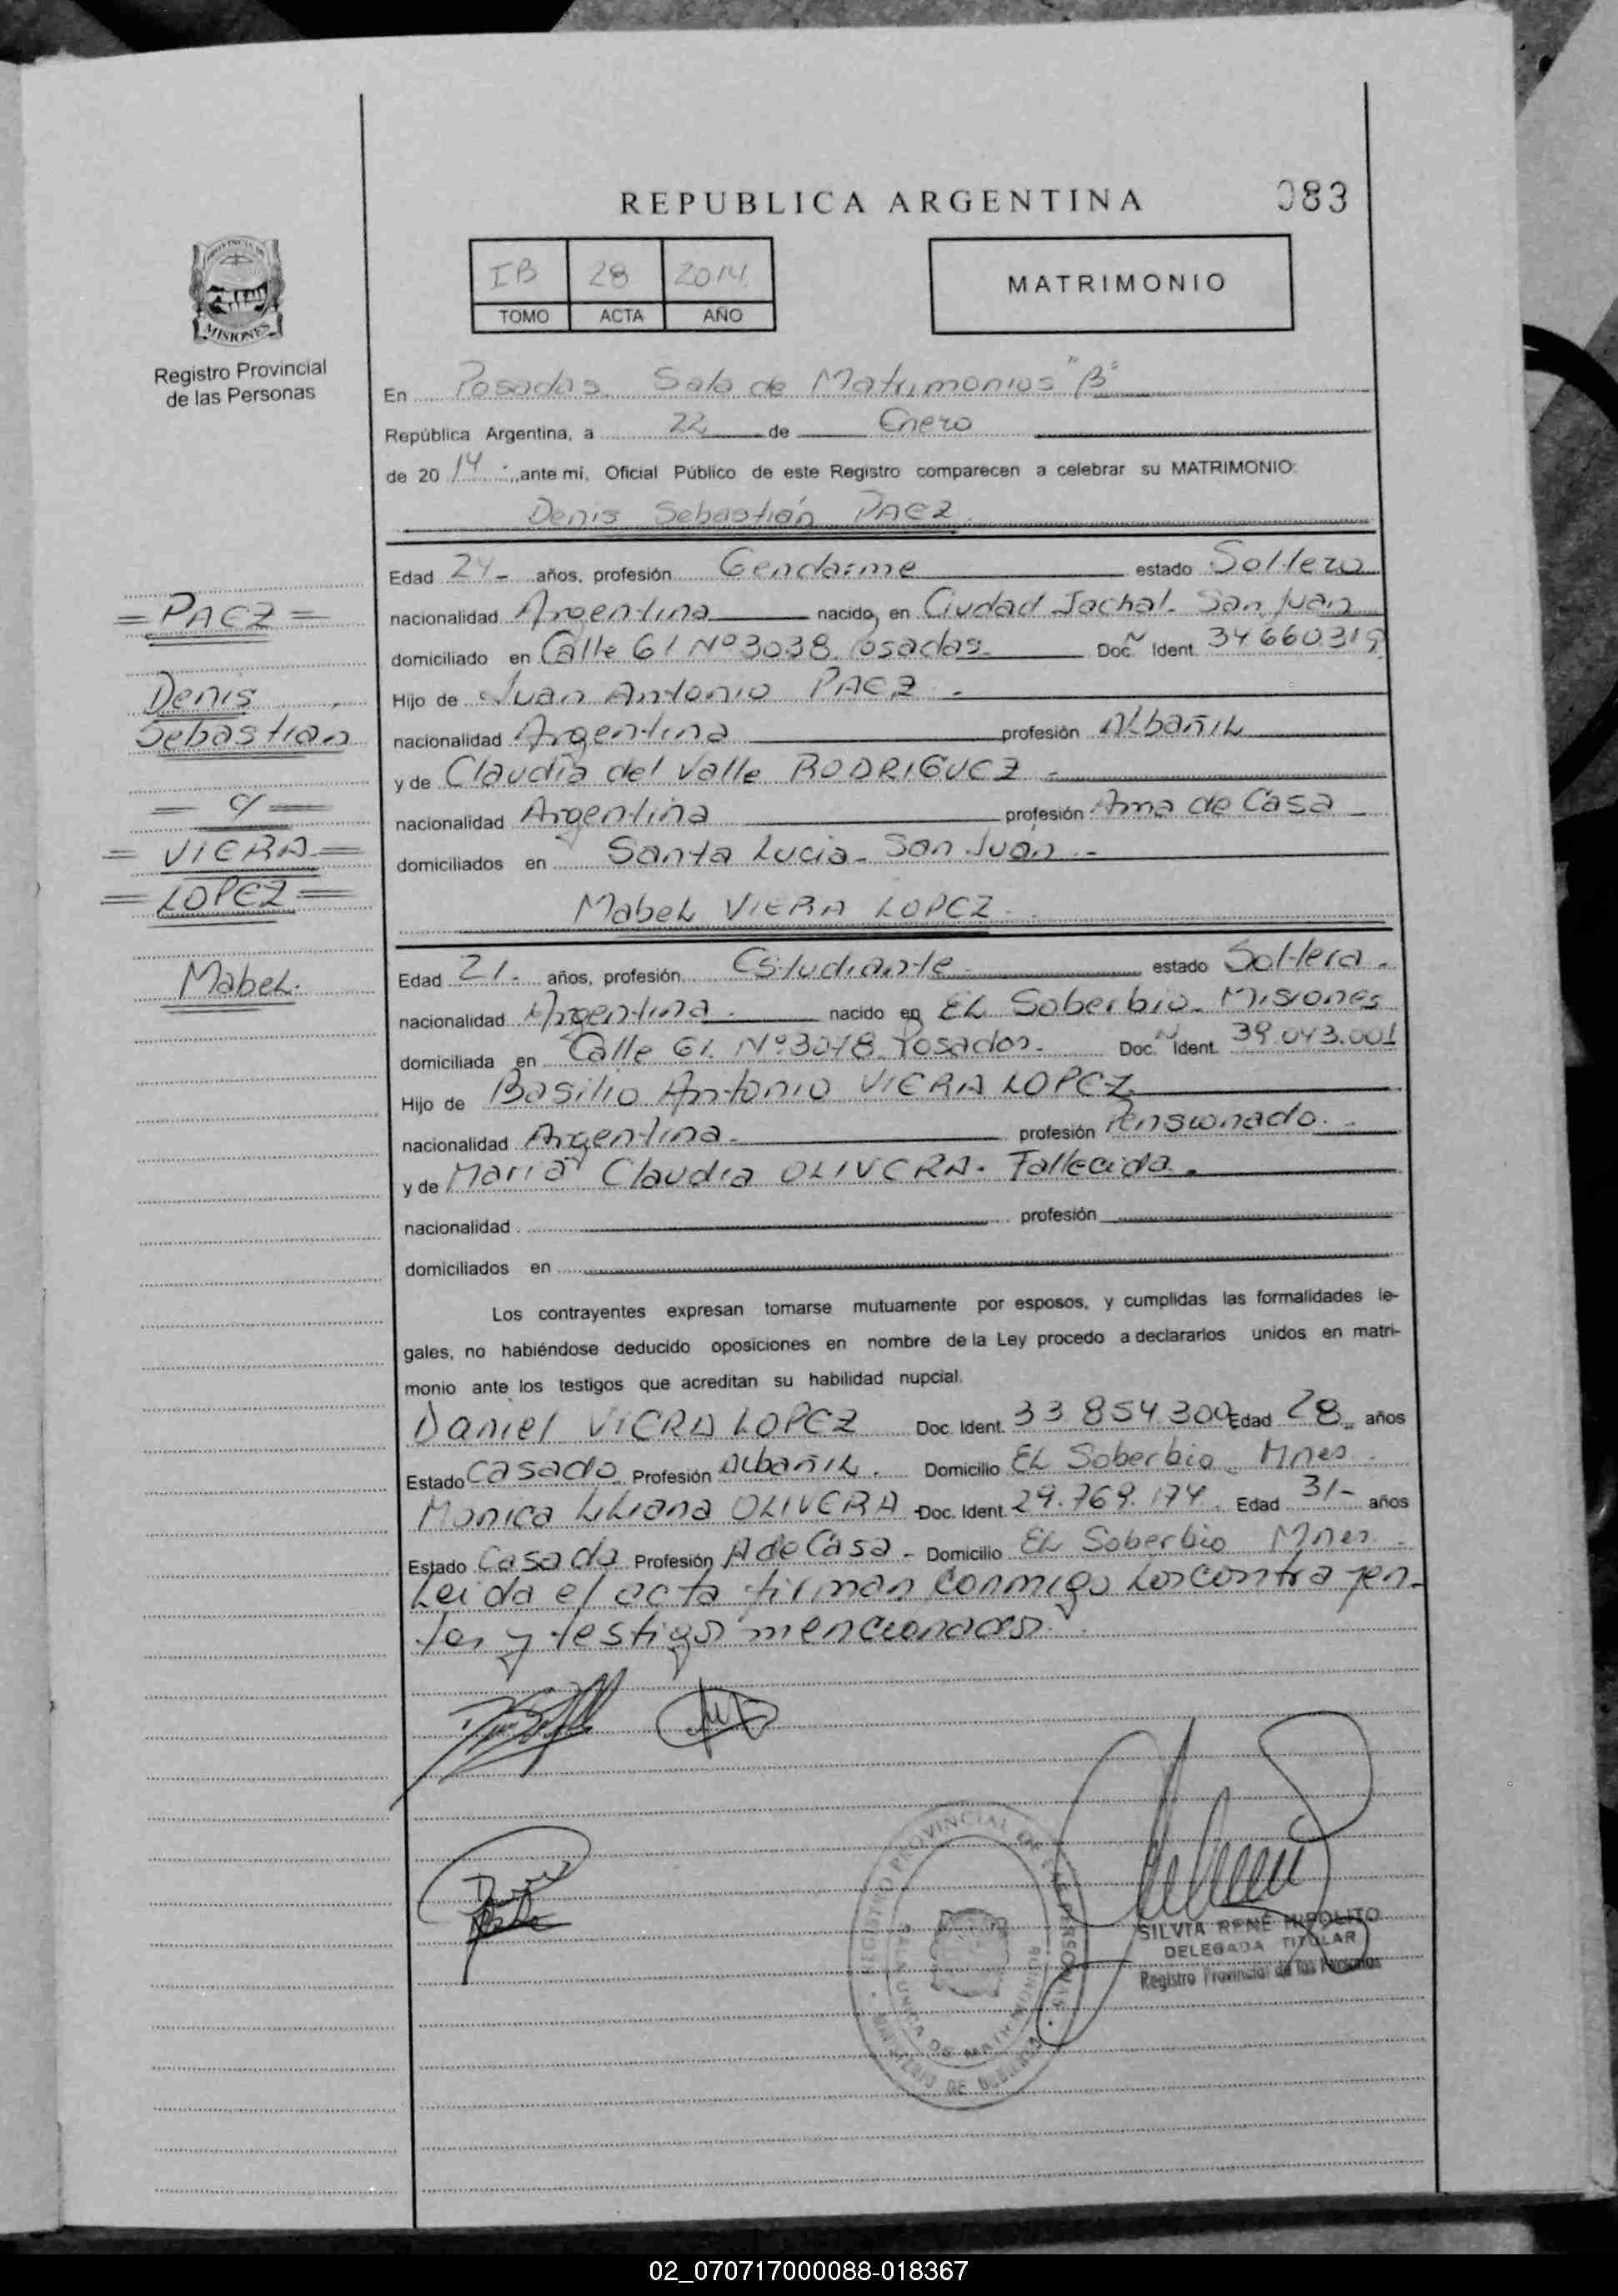 REPUBLICA ARGENTINA
083
IB 28 2014
TOMO ACTA AÑO
MATRIMONIO
MISIONES
Registro Provincial
de las Personas
En Posadas. Sala de Matrimonios "B"
República Argentina, a 22 de Enero
de 2014 ante mí, Oficial Público de este Registro comparecen a celebrar su MATRIMONIO:
Denis Sebastián PAEZ
Edad 24 años, profesión Gendarme estado Soltero
nacionalidad Argentina nacido en Ciudad Jachal - San Juan
domiciliado en Calle 61 Nº 3038 Posadas Doc. Ident. 34660319
Hijo de Juan Antonio PAEZ
nacionalidad Argentina profesión Albañil
y de Claudia del Valle RODRIGUEZ
nacionalidad Argentina profesión Ama de Casa
domiciliados en Santa Lucia - San Juan
= PAEZ =
Denis
Sebastian
= c/ =
= VIERA =
= LOPEZ =
Mabel.
Mabel VIERA LOPEZ
Edad 21 años, profesión Estudiante estado Soltera
nacionalidad Argentina nacido en El Soberbio - Misiones
domiciliada en Calle 61 Nº Posadas Doc. Ident. 39.043.001
Hijo de Basilio Antonio VIERA LOPEZ
nacionalidad Argentina profesión Pensionado
y de Maria Claudia OLIVERA. Fallecida
nacionalidad profesión
domiciliados en
Los contrayentes expresan tomarse mutuamente por esposos, y cumplidas las formalidades le-
gales, no habiéndose deducido oposiciones en nombre de la Ley procedo a declararlos unidos en matri-
monio ante los testigos que acreditan su habilidad nupcial.
Daniel VIERA LOPEZ Doc. Ident. 33.854.300 Edad 28 años
Estado Casado Profesión Albañil. Domicilio El Soberbio - Mnes
Monica Liliana OLIVERA Doc. Ident. 29.769.174 Edad 31 años
Estado Casada Profesión A de Casa - Domicilio El Soberbio Mnes
Leida el acta firman conmigo los contrayen-
tes y testigos mencionados
REGISTRO PROVINCIAL DE LAS PERSONAS
MINISTERIO DE GOBIERNO
SILVIA RENÉ HIPOLITO
DELEGADA TITULAR
Registro Provincial de las Personas
02_070717000088-018367